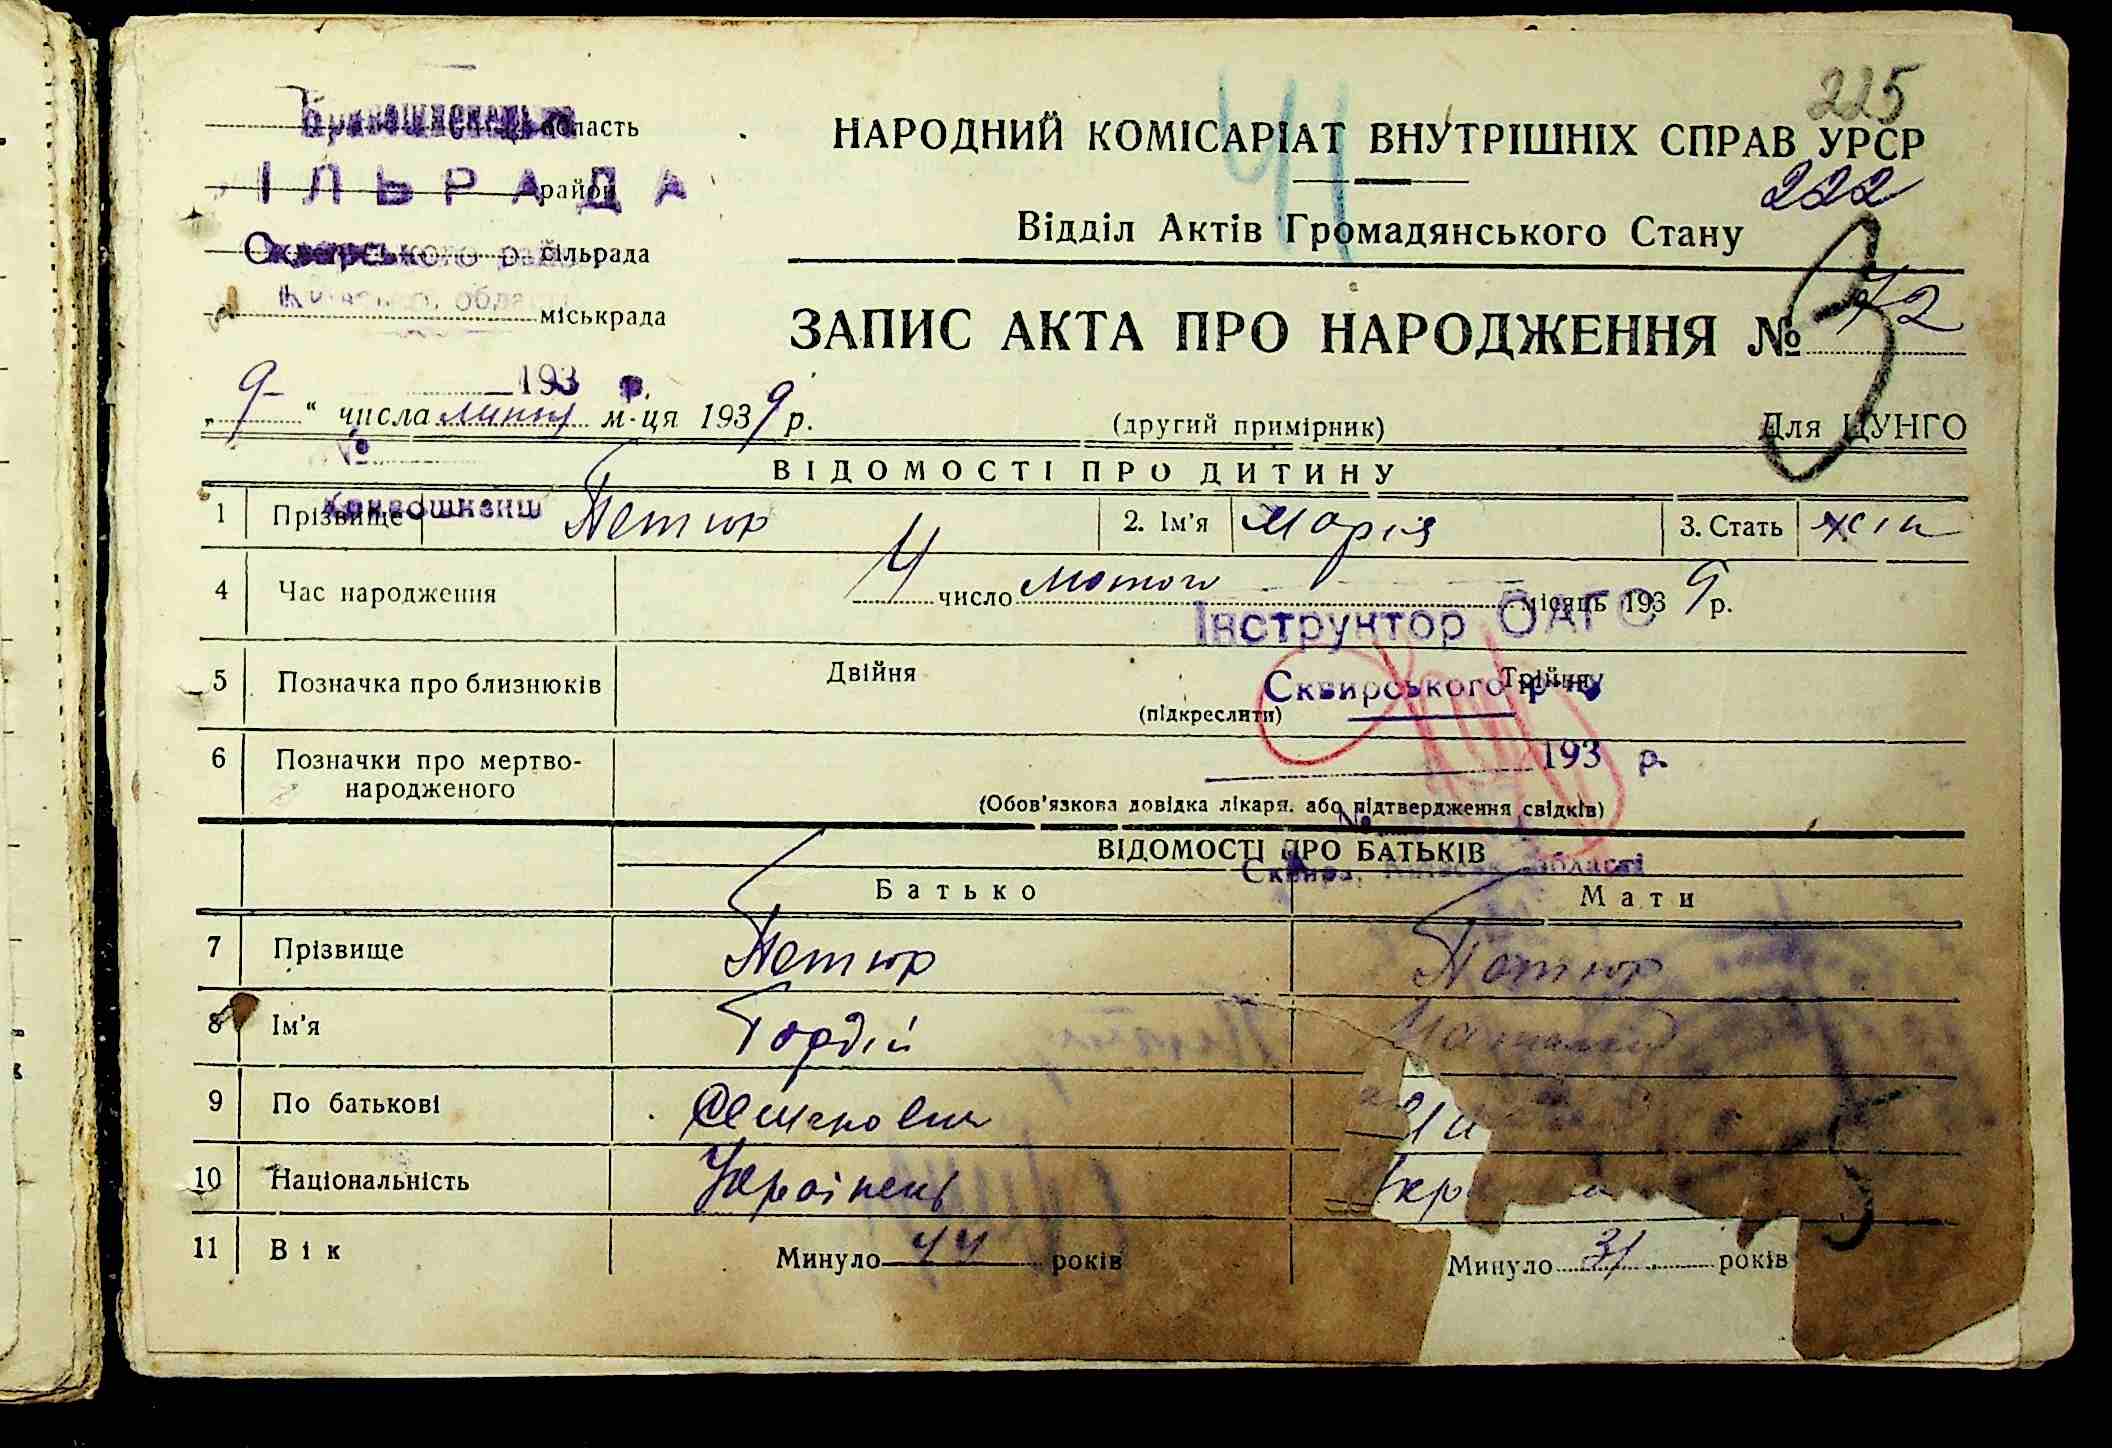 область
ІЛЬРАДА
район
Сквирського райо
сільрада
міськрада
193 р.
225
НАРОДНИЙ КОМІСАРІАТ ВНУТРІШНІХ СПРАВ УРСР
222
Відділ Актів Громадянського Стану
ЗАПИС АКТА ПРО НАРОДЖЕННЯ № 72
„ 9 “ числа липня м-ця 1939 р. (другий примірник) Для ЦУНГО
№
ВІДОМОСТІ ПРО ДИТИНУ
1 Прізвище Петюр 2. Ім'я Марія 3. Стать жін
4 Час народження 4 число лютого місяць 1939 р.
Інструктор ОАГО
5 Позначка про близнюків Двійня Трійня
Сквирського р-ну
(підкреслити)
6 Позначки про мертво-
народженого
193 р.
(Обов'язкова довідка лікаря, або підтвердження свідків)
№
ВІДОМОСТІ ПРО БАТЬКІВ
Сквира, Київськ. області
Батько Мати
7 Прізвище Петюр Петюр
8 Ім'я Гордій
9 По батькові Семенович
10 Національність Українець Укр
11 Вік Минуло 44 років Минуло 31 років